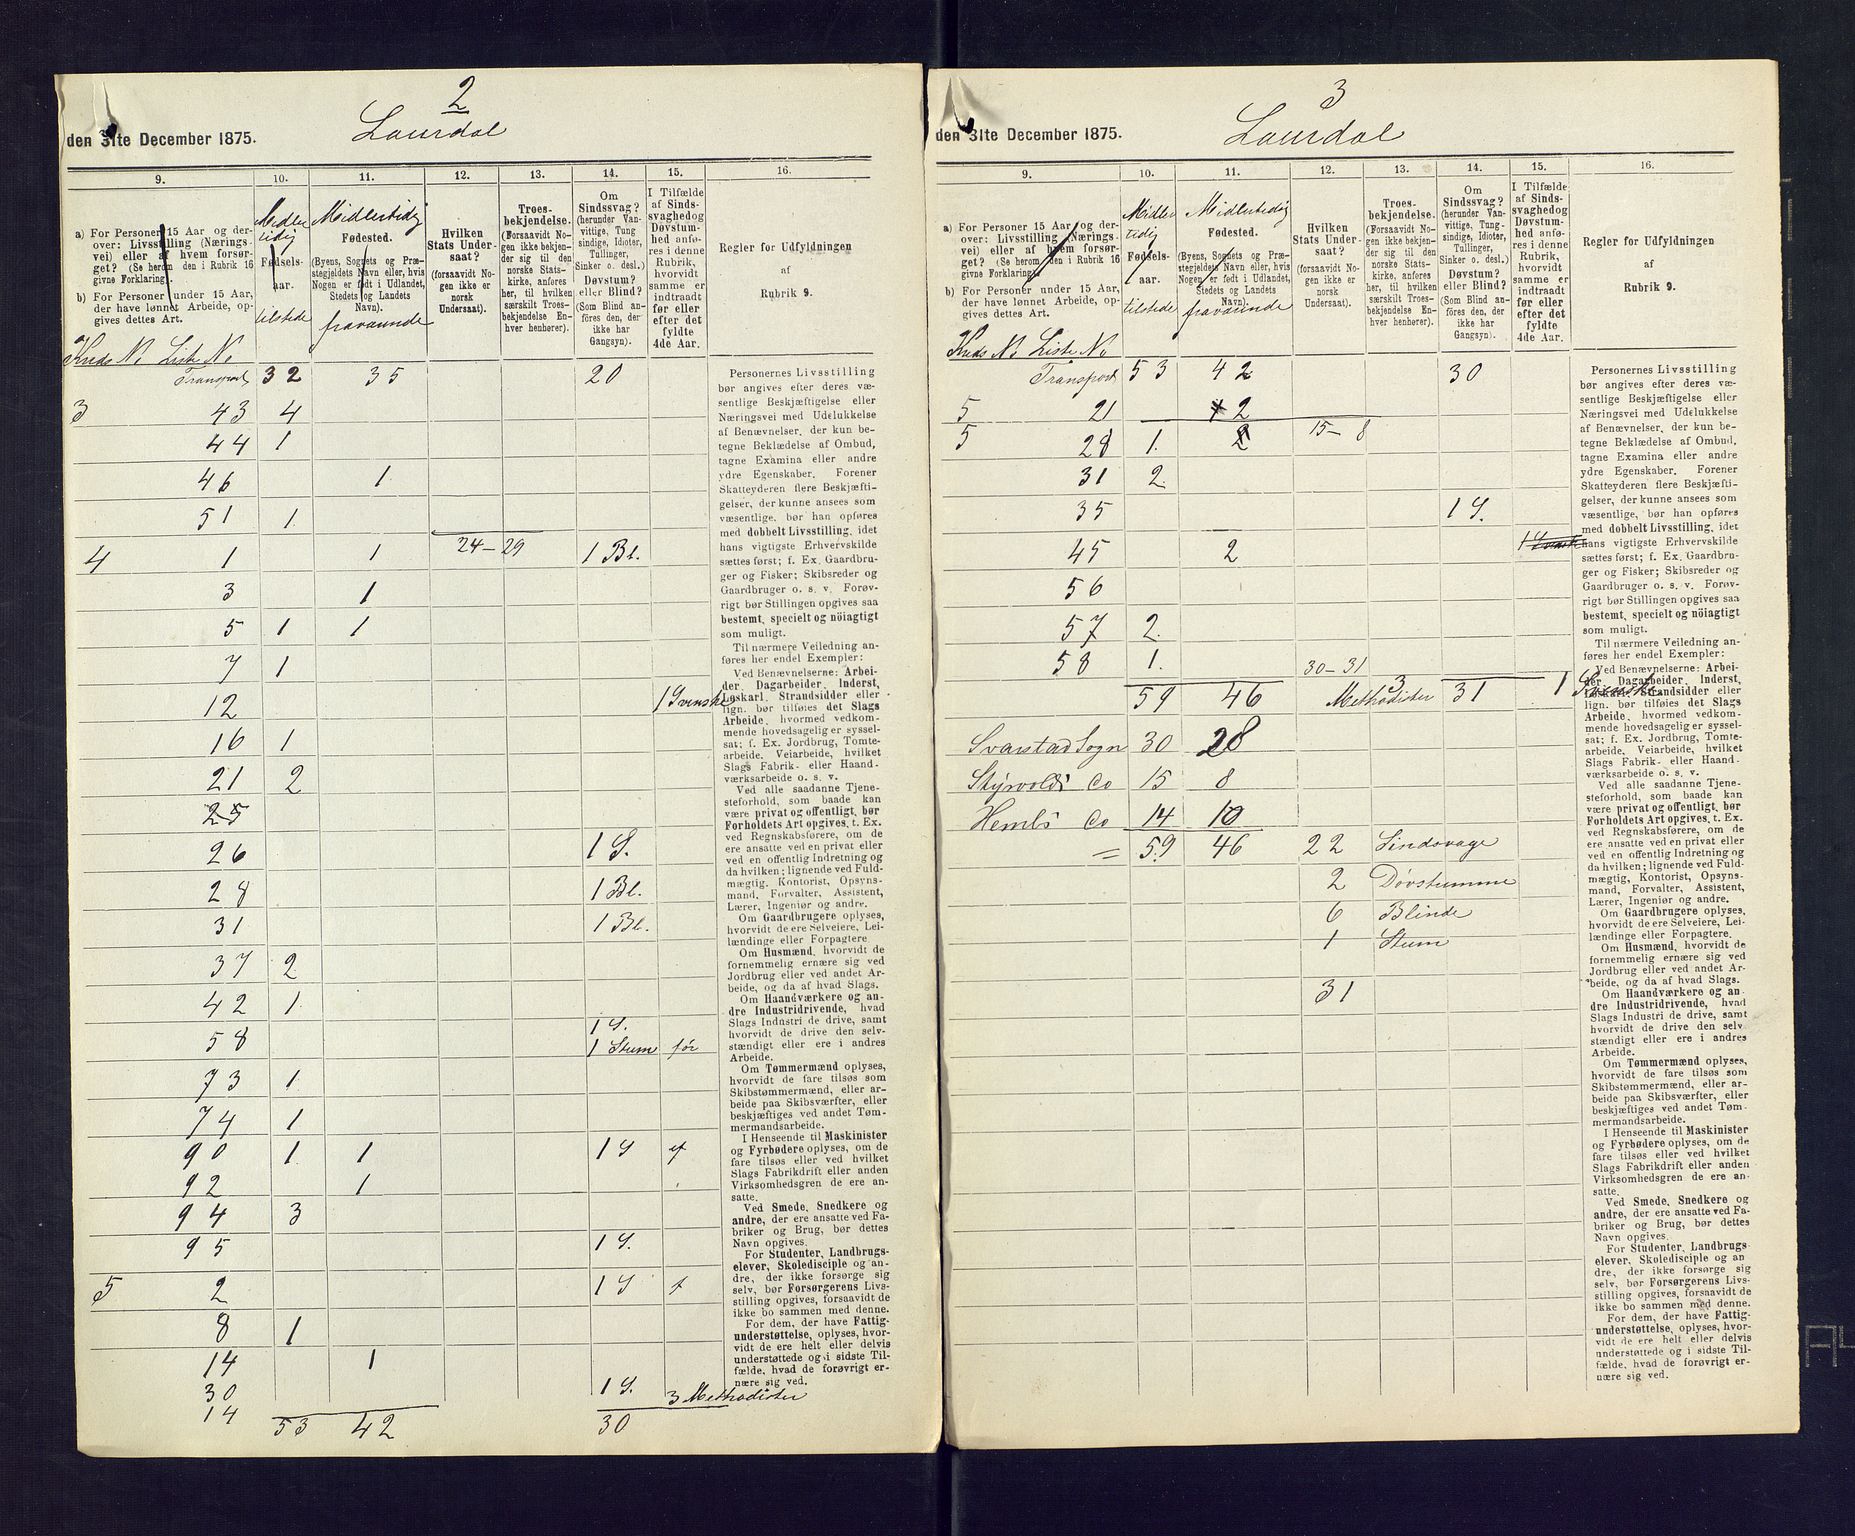 2
den 31te December 1875.
Laurdal
9.
10.
11.
12.
13.
14.
15.
16.
a) For Personer 15 Aar og der-
over: Livsstilling (Nærings-
vei) eller af hvem forsør-
get? (Se herom den i Rubrik 16
givne Forklaring).
b) For Personer under 15 Aar,
der have lønnet Arbeide, op-
gives dettes Art.
Midler
tidig
Fødsels-
aar.
tilstede
Midlertidig
Fødested.
(Byens, Sognets og Præ-
stegjeldets Navn eller, hvis
Nogen er født i Udlandet,
Stedets og Landets
Navn).
fraværende
Hvilken
Stats Under-
saat?
(forsaavidt No-
gen ikke er
norsk
Undersaat).
Troes-
bekjendelse.
(Forsaavidt No-
gen ikke bekjen-
der sig til den
norske Stats-
kirke, anføres
her, til hvilken
særskilt Troes-
bekjendelse En-
hver henhører).
Om
Sindssvag?
(herunder Van-
vittige, Tung
sindige, Idioter,
Tullinger,
Sinker o. desl.).
Døvstum?
eller Blind?
(Som Blind an-
føres den, der
ikke har
Gangsyn).
I Tilfælde
af Sinds-
svaghedog
Døvstum-
hed anfø-
res i denne
Rubrik,
hvorvidt
samme er
indtraadt
før eller
efter det
fyldte
4de Aar.
Regler for Udfyldningen
af
Rubrik 9.
Kreds No Liste No
Transport 32 35 20
3 43 4
44 1
46 1
51 1
4 1 1 24-29 1 Bl.
3 1
5 1 1
7 1
12 1 Svenske
16 1
21 2
25
26 1 S.
28 1 Bl.
31 1 Bl.
37 2
42 1
58 1 S.
1 Stum før
73 1
74 1
90 1 1 1 S
92 1
94 3
95 1 S.
5 2 1 S
8 1
14 1
30 1 S.
14 3 Methodister
53 42 30
Personernes Livsstilling
bør angives efter deres væ-
sentlige Beskjæftigelse eller
Næringsvei med Udelukkelse
af Benævnelser, der kun be-
tegne Beklædelse af Ombud,
tagne Examina eller andre
ydre Egenskaber. Forener
Skatteyderen flere Beskjæfti-
gelser, der kunne ansees som
væsentlige, bør han opføres
med dobbelt Livsstilling, idet
hans vigtigste Erhvervskilde
sættes først; f. Ex. Gaardbru-
ger og Fisker; Skibsreder og
Gaardbruger o. s. v. Forøv-
rigt bør Stillingen opgives saa
bestemt, specielt og nöiagtigt
som muligt.
Til nærmere Veiledning an-
føres her endel Exempler:
Ved Benævnelserne: Arbei-
der, Dagarbeider, Inderst,
Løskarl, Strandsidder eller
lign. bør tilføies det Slags
Arbeide, hvormed vedkom-
mende hovedsagelig er syssel-
sat; f. Ex. Jordbrug, Tomte-
arbeide. Veiarbeide, hvilket
Slags Fabrik- eller Haand-
værksarbeide o. s. v.
Ved alle saadanne Tjene-
steforhold, som baade kan
være privat og offentligt, bør
Forholdets Art opgives, t. Ex.
ved Regnskabsførere, om de
ere ansatte ved en privat eller
ved en offentlig Indretning og
da hvilken; lignende ved Fuld-
mægtig, Kontorist, Opsyns-
mand, Forvalter, Assistent,
Lærer, Ingeniør og andre.
Om Gaardbrugere oplyses,
hvorvidt de ere Selveiere, Lei-
lændinge eller Forpagtere
Om Husmænd, hvorvidt de
fornemmelig ernære sig ved
Jordbrug eller ved andet Ar-
beide, og da af hvad Slags.
Om Haandværkere og an-
dre Industridrivende, hvad
Slags Industri de drive, samt
hvorvidt de drive den selv-
stændigt eller ere i andres
Arbeide.
Om Tømmermænd oplyses,
hvorvidt de fare tilsøs som
Skibstømmermænd, eller ar-
beide paa Skibsværfter, eller
beskjæftiges ved andet Tøm-
mermandsarbeide.
I Henseende til Maskinister
og Fyrbødere oplyses, om de
fare tilsøs eller ved hvilket
Slags Fabrikdrift eller anden
Virksomhedsgren de ere an-
satte.
Ved Smede, Snedkere og
andre, der ere ansatte ved Fa-
briker og Brug, bør dettes
Navn opgives.
For Studenter, Landbrugs-
elever, Skoledisciple og an-
dre, der ikke forsørge sig
selv, bør Forsørgerens Livs-
stilling opgives, forsaavidt de
ikke bo sammen med denne.
For dem, der have Fattig-
understøttelse, oplyses, hvor-
vidt de ere helt eller delvis
understøttede og i sidste Til-
fælde, hvad de forøvrigt er-
nære sig ved.
3
den 31te December 1875.
Laurdal
9.
10.
11.
12.
13.
14.
15.
16.
a) For Personer 15 Aar og der-
over: Livsstilling (Nærings-
vei) eller af hvem forsør-
get? (Se herom den i Rubrik 16
givne Forklaring).
b) For Personer under 15 Aar,
der have lønnet Arbeide, op-
gives dettes Art.
Midler
tidig
Fødsels-
aar.
tilstede
Midlertidig
Fødested.
(Byens, Sognets og Præ-
stegjeldets Navn eller, hvis
Nogen er født i Udlandet,
Stedets og Landets
Navn).
fraværende
Hvilken
Stats Under-
saat?
(forsaavidt No-
gen ikke er
norsk
Undersaat).
Troes-
bekjendelse.
(Forsaavidt No-
gen ikke bekjen-
der sig til den
norske Stats-
kirke, anføres
her, til hvilken
særskilt Troes-
bekjendelse En-
hver henhører).
Om
Sindssvag?
(herunder Van-
vittige, Tung-
sindige, Idioter,
Tullinger,
Sinker o. desl.).
Døvstum?
eller Blind?
(Som Blind an-
føres den, der
ikke har
Gangsyn).
I Tilfælde
af Sinds-
svaghed og
Døvstum-
hed anfø-
res i denne
Rubrik,
hvorvidt
samme er
indtraadt
før eller
efter det
fyldte
4de Aar.
Regler for Udfyldningen
af
Rubrik 9.
Kreds No Liste No
Transport 53 42 30
5 21 2
5 28 1. 2 15-8
31 2.
35 1 S.
45 2
56
57 2.
58 1. 30-31
59 46 3 Methodister 31 1 Svenske
Svarstad Sogn 30 28
Styrvolds Do 15 8
Hembs Do 14 10
= 59 46 22 Sindsvage
2 Døvstumme
6 Blinde
1 Stum
31
Personernes Livsstilling
bør angives efter deres væ-
sentlige Beskjæftigelse eller
Næringsvei med Udelukkelse
af Benævnelser, der kun be-
tegne Beklædelse af Ombud,
tagne Examina eller andre
ydre Egenskaber. Forener
Skatteyderen flere Beskjæfti-
gelser, der kunne ansees som
væsentlige, bør han opføres
med dobbelt Livsstilling, idet
hans vigtigste Erhvervskilde
sættes først; f. Ex. Gaardbru-
ger og Fisker; Skibsreder og
Gaardbruger o. s. v. Forøv-
rigt bør Stillingen opgives saa
bestemt, specielt og nöiagtigt
som muligt.
Til nærmere Veiledning an-
føres her endel Exempler:
Ved Benævnelserne: Arbei-
der, Dagarbeider, Inderst,
Løskarl, Strandsidder eller
lign. bør tilføies det Slags
Arbeide, hvormed vedkom-
mende hovedsagelig er syssel-
sat; f. Ex. Jordbrug, Tomte-
arbeide. Veiarbeide, hvilket
Slags Fabrik- eller Haand-
værksarbeide o. s. v.
Ved alle saadanne Tjene-
steforhold, som baade kan
være privat og offentligt, bør
Forholdets Art opgives, t. Ex.
ved Regnskabsførere, om de
ere ansatte ved en privat eller
ved en offentlig Indretning og
da hvilken; lignende ved Fuld-
mægtig, Kontorist, Opsyns-
mand, Forvalter, Assistent,
Lærer, Ingeniør og andre.
Om Gaardbrugere oplyses,
hvorvidt de ere Selveiere, Lei-
lændinge eller Forpagtere
Om Husmænd, hvorvidt de
fornemmelig ernære sig ved
Jordbrug eller ved andet Ar-
beide, og da af hvad Slags.
Om Haandværkere og an-
dre Industridrivende, hvad
Slags Industri de drive, samt
hvorvidt de drive den selv-
stændigt eller ere i andres
Arbeide.
Om Tømmermænd oplyses,
hvorvidt de fare tilsøs som
Skibstømmermænd, eller ar-
beide paa Skibsværfter, eller
beskjæftiges ved andet Tøm-
mermandsarbeide.
I Henseende til Maskinister
og Fyrbødere oplyses, om de
fare tilsøs eller ved hvilket
Slags Fabrikdrift eller anden
Virksomhedsgren de ere an-
satte.
Ved Smede, Snedkere og
andre, der ere ansatte ved Fa-
briker og Brug, bør dettes
Navn opgives.
For Studenter, Landbrugs-
elever, Skoledisciple og an-
dre, der ikke forsørge sig
selv, bør Forsørgerens Livs-
stilling opgives, forsaavidt de
ikke bo sammen med denne.
For dem, der have Fattig-
understøttelse, oplyses, hvor-
vidt de ere helt eller delvis
understøttede og i sidste Til-
fælde, hvad de forøvrigt er-
nære sig ved.